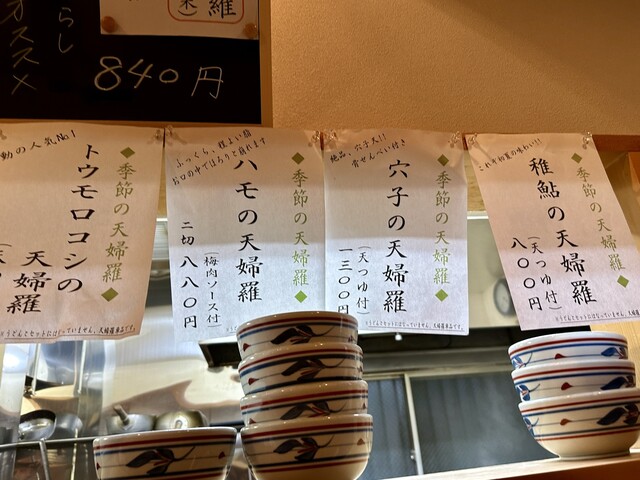 らし
オススメ
840円
羅
季節の天婦羅
トウモロコシの
天婦羅
動の人気No1
季節の天婦羅
ふっくら、程よい脂
お口の中でほろりと崩れます
ハモの天婦羅
(梅肉ソース付)
二切 八八〇円
季節の天婦羅
絶品、穴子天!!
骨せんべい付き
穴子の天婦羅
(天つゆ付)
一三〇〇円
※うどんとセットにはなっていません。天婦羅単品です。
季節の天婦羅
これぞ初夏の味わい!!
稚鮎の天婦羅
(天つゆ付)
八〇〇円